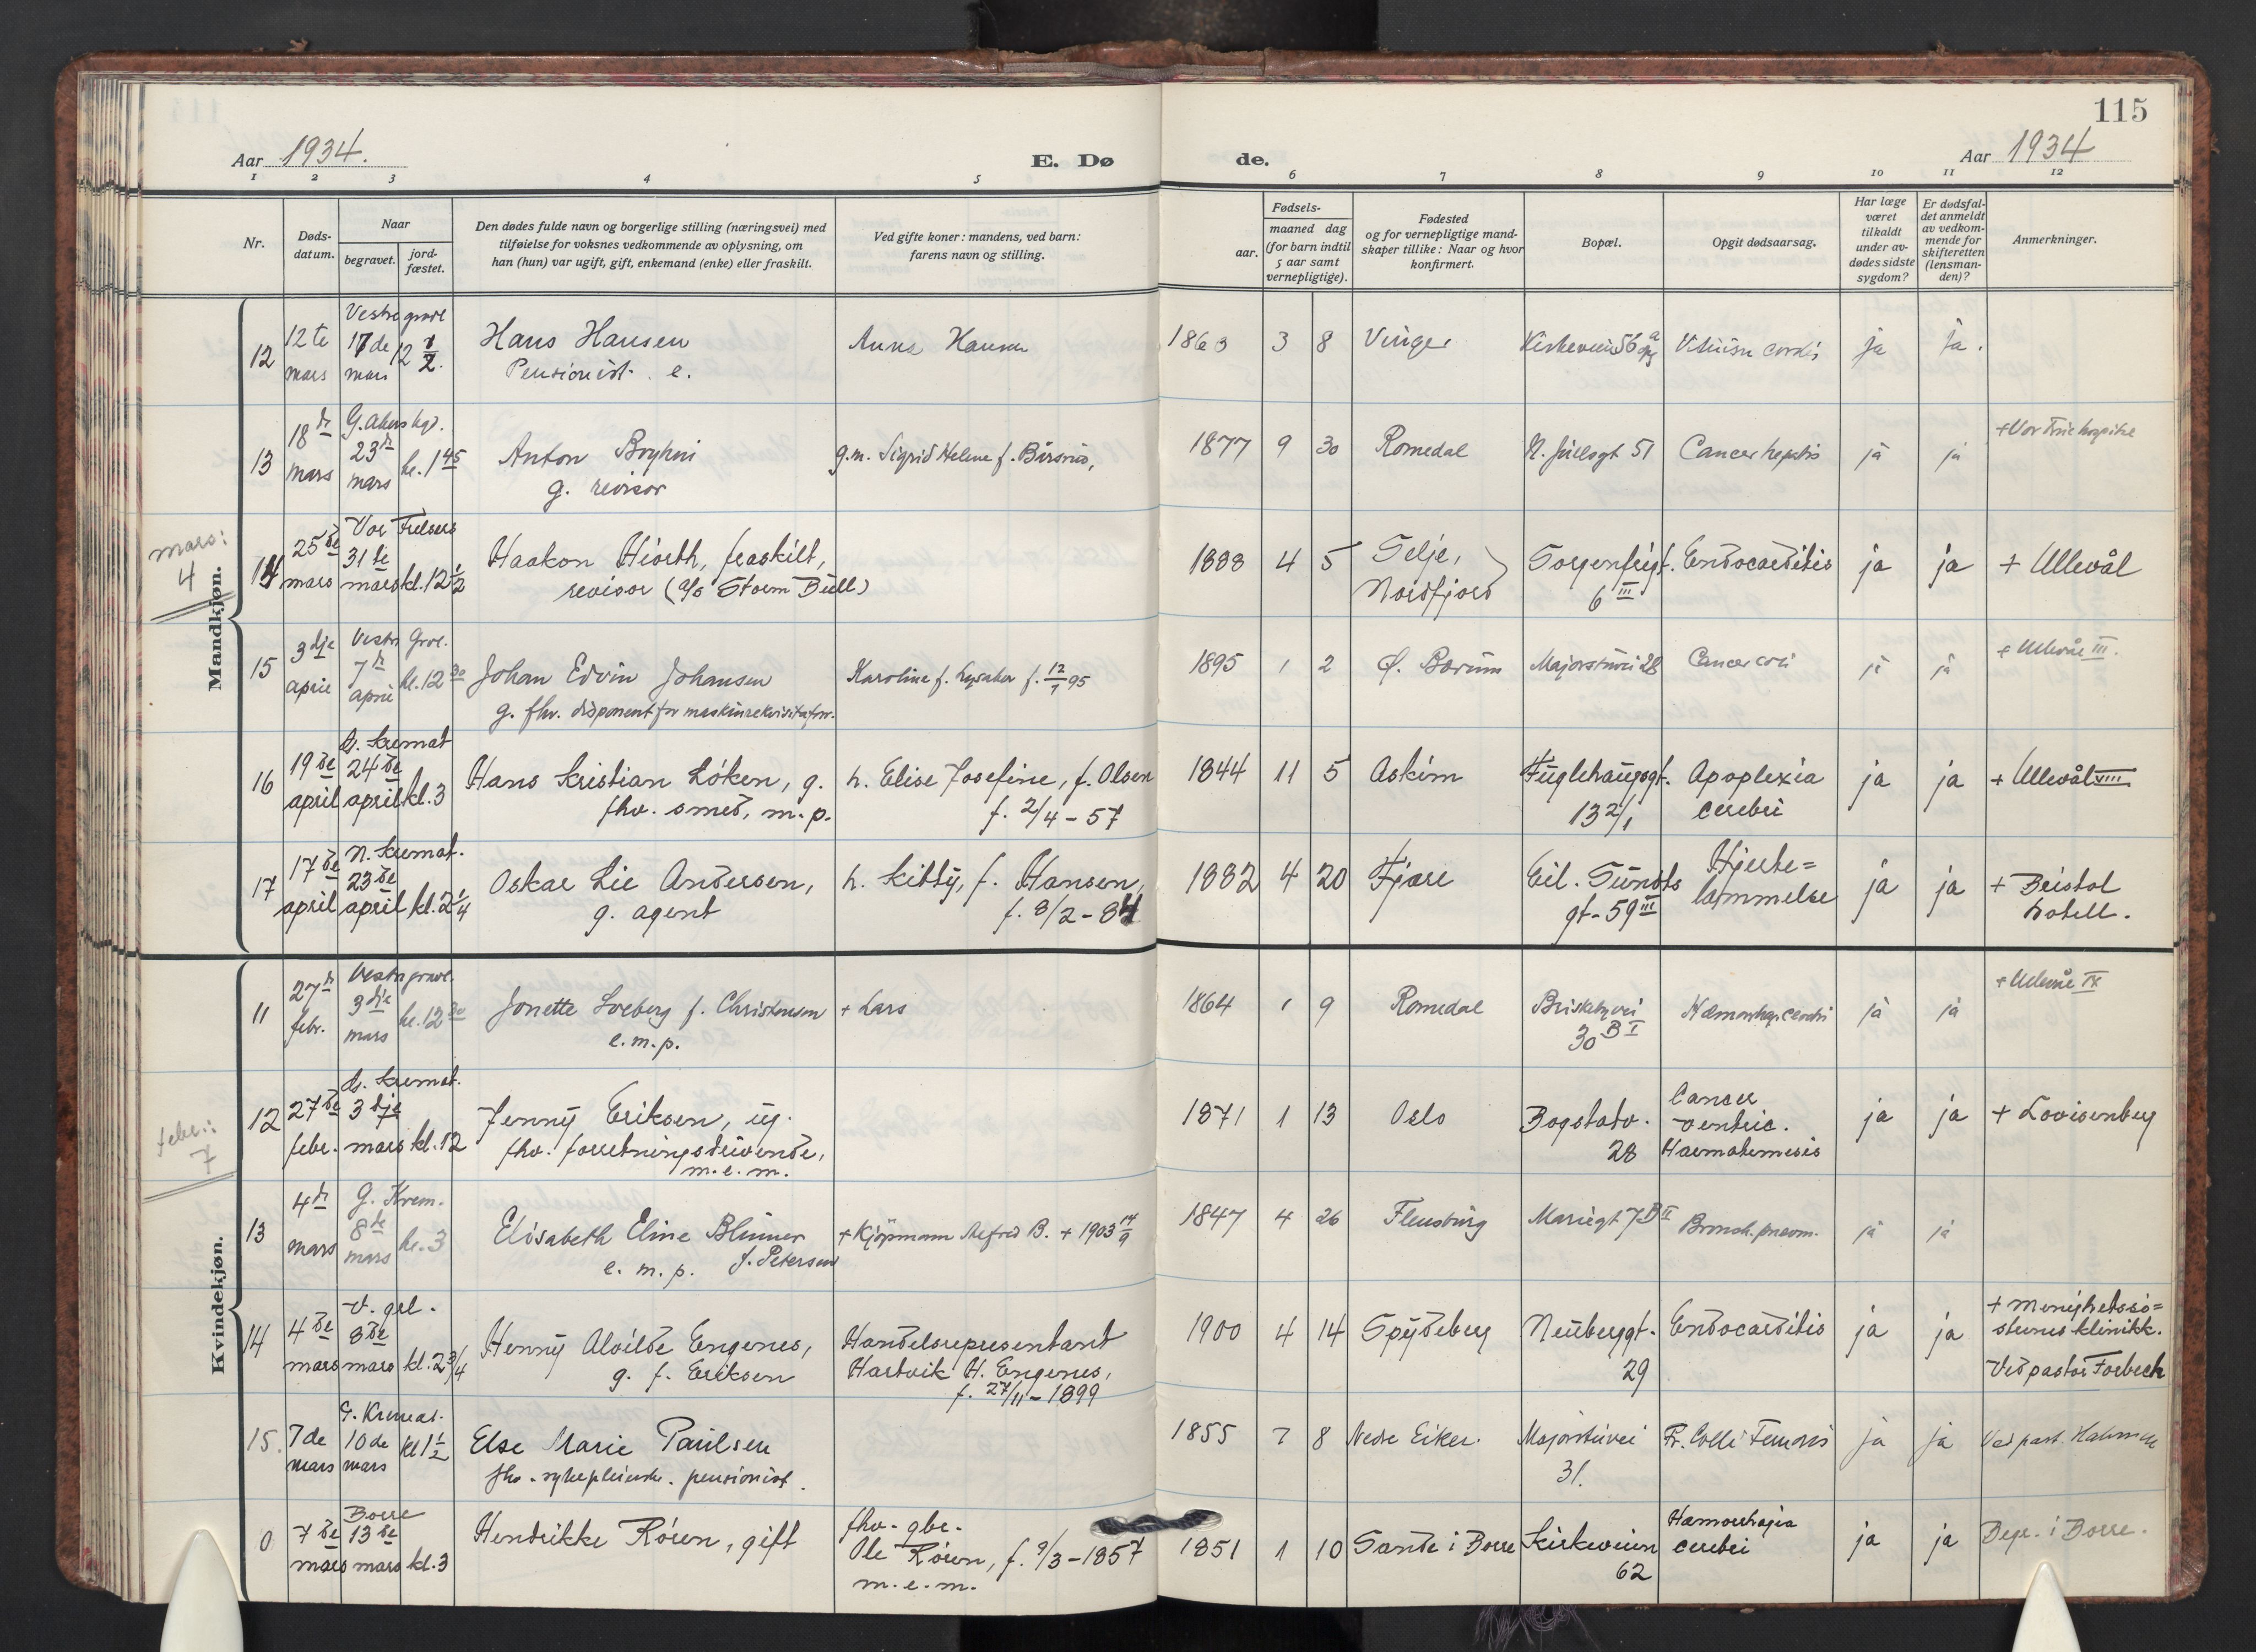 115
Aar 1934.
E. Dø
de.
Aar 1934
1 2 3 4 5 6 7 8 9 10 11 12
Nr.
Døds-
datum.
Naar
begravet.
jord-
fæstet.
Den dødes fulde navn og borgerlige stilling (næringsvei) med
tilføielse for voksnes vedkommende av oplysning, om
han (hun) var ugift, gift, enkemand (enke) eller fraskilt.
Ved gifte koner: mandens, ved barn:
farens navn og stilling.
Fødsels-
aar.
maaned dag
(for barn indtil
5 aar samt
vernepligtige).
Fødested
og for vernepligtige mand-
skaper tillike: Naar og hvor
konfirmert.
Bopæl.
Opgit dødsaarsag.
Har læge
været
tilkaldt
under av-
dødes sidste
sygdom?
Er dødsfal-
det anmeldt
av vedkom-
mende for
skifteretten
(lensman-
den)?
Anmerkninger.
Mandkjøn.
mars:
4
12
12te
mars
Vestre gravl
17de
mars
12 1/2.
Hans Hansen
Pensionist. e.
Anna Hansen
1863 3 8
Vinger
Kirkeveien 56
Vitium cordis
ja
ja.
13
18de
mars
G. Akers kgd.
23de
mars
kl. 1 45
Anton
g. revisor
g.m. Sigrid Helene f.
1877 9 30
Romedal
N. Juelsgt 51
Cancer hepatis
ja
ja
+ Vor Frue hospital
14
25de
mars
Vor Frelsers
31te
mars
kl. 12 1/2
Haakon Hiorth, fraskilt,
revisor (c/o Storm Bull)
1888 4 5
Selje,
Nordfjord
Sorgenfrigt.
6 III
Endocarditis
ja
ja
+ Ullevål
15
3dje
april
Vestre Grvl.
7de
april
kl. 12 30
Johan Edvin Johansen
g. fhv. disponent for maskinrekvisitaforr.
Karoline f. f. 12/1 95
1895 1 2
Ø. Bærum
Majorstuvei 28
Cancer coli
ja
ja
+ Ullevål III.
16
19de
april
G. Kremat
24de
april
kl. 3
Hans Kristian Løken, g.
fhv. smed, m.p.
h. Elise Josefine, f. Olsen
f. 2/4 - 57
1844 11 5
Askim
Fuglehaugsgt.
13 2/1
Apoplexia
cerebri
ja
ja
+ Ullevål VIII
17
17de
april
N. Kremat.
23de
april
kl. 2 1/4
Oskar Lie Andersen,
g. agent
h. Kitty, f. Hansen,
f. 8/2 - 84
1882 4 20
Fjære
Eil. Sundts
gt. 59 III
Hjerte=
lammelse
ja
ja
+ Bristol
hotell.
Kvindekjøn.
febr.:
7
11
27de
febr.
Vestre gravl.
3dje
mars
kl. 12 30
Jonette Loeberg f. Christensen
e.m.p.
+ Lars
1864 1 9
Romedal
Briskebyvei
30 B I
Hæmorrhag. cerebri
ja
ja
+ Ullevål IX
12
27de
febr.
G. Kremat.
3dje
mars
kl. 12
Jenny Eriksen, ug.
fhv. forretningsdrivende,
m.e.m.
1871 1 13
Oslo
Bogstadv.
28
Cancer
ventric.
Haematemesis
ja
ja
+ Lovisenberg
13
4de
mars
G. Krem.
8de
mars
kl. 3
Elisabeth Eline
e. m. p. f. Petersen
+ Kjøpmann Alfred B. + 1903 14/9
1847 4 26
Flensburg
Mariegt 7 B II
Bronch. pneum.
ja
ja
14
4de
mars
V. grl.
8de
mars
kl. 2 3/4
Henny Alvilde Engenes,
g. f. Eriksen
Handelsrepresentant
Hartvik H. Engenes,
f. 27/11 - 1899
1900 4 14
Spydeberg
Neuberggt.
29
Endocarditis
ja
ja
+ menighetssø=
strenes klinikk.
Ved pastor Forbech
15.
7de
mars
G. Kremat.
10de
mars
kl 1 1/2
Else Marie Paulsen
fhv. sykepleierske. pensionist.
1855 7 8
Nedre Eiker.
Majorstuvei
31.
Fr. Colli Femoris
ja
ja
Ved past.
0
7de
mars
Borre
13de
mars
kl. 3
Hendrikke Røren, gift
fhv. gbr.
Ole Røren, f. 9/3 - 1857
m.e.m.
1851 1 10
Sande i Borre
Kirkeveien
62
Hæmorrhagia
cerebri
ja
ja
Begr. i Borre.